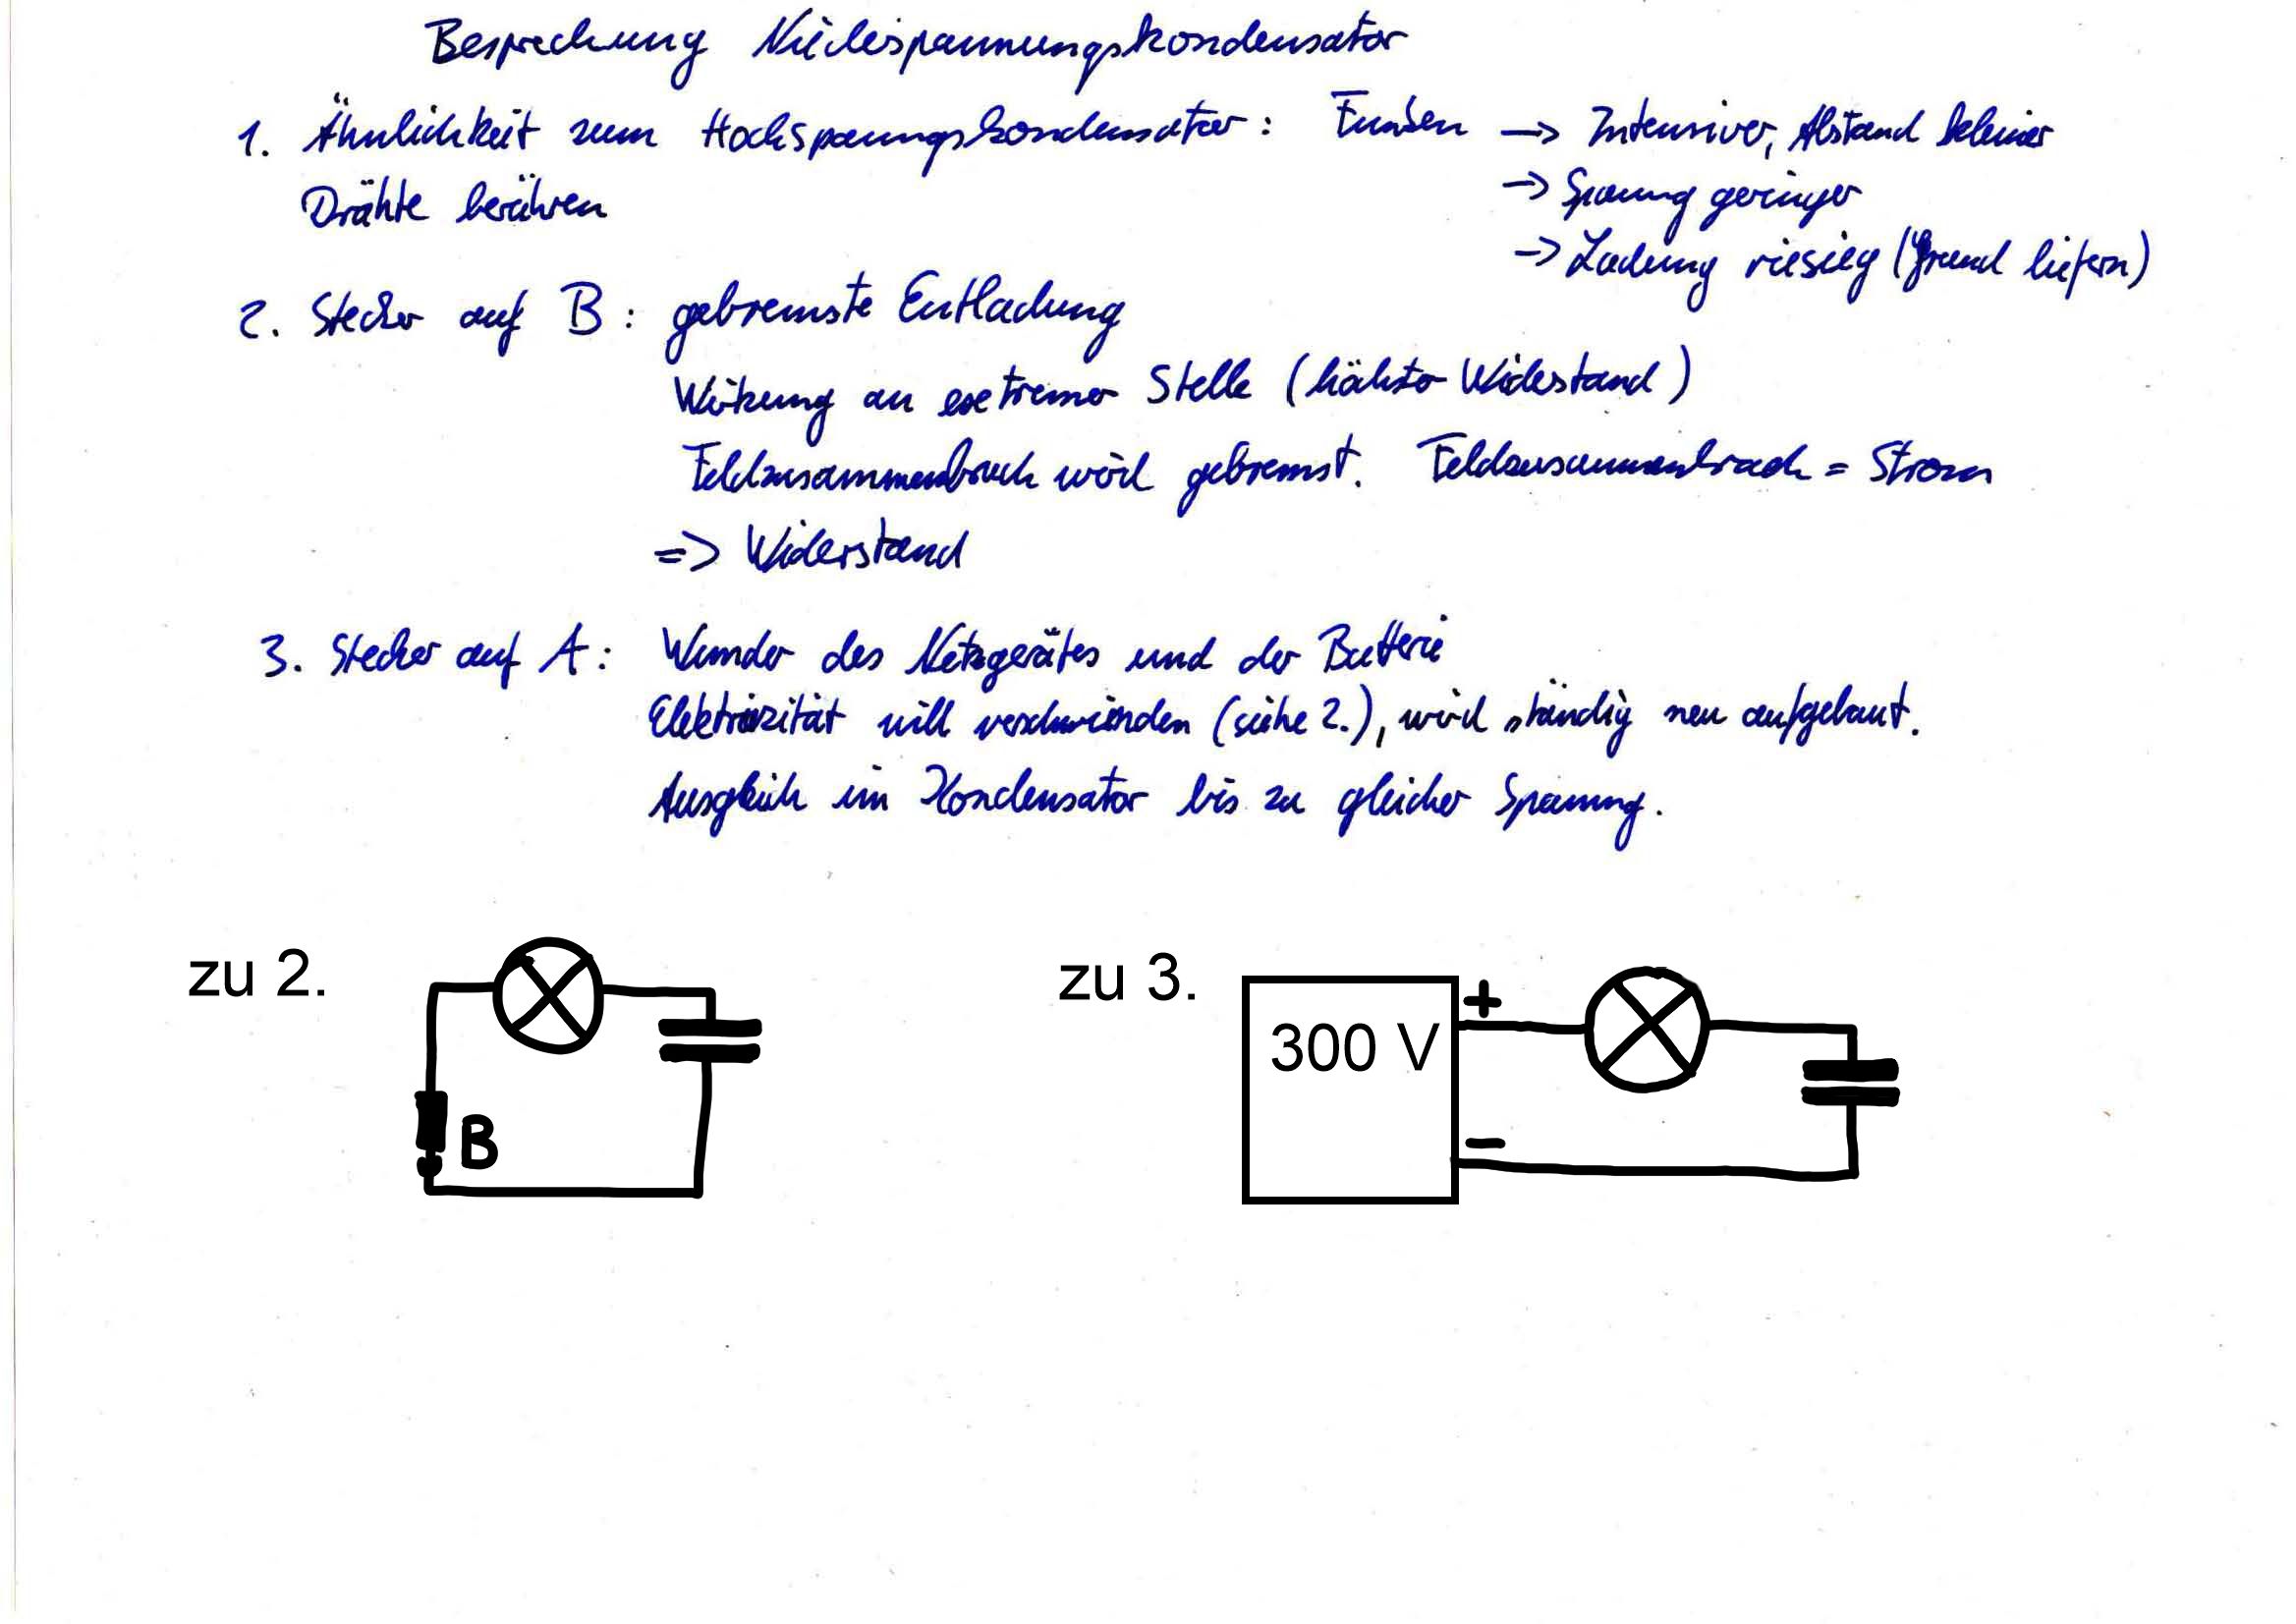 Besprechung Niederspannungskondensator
1. Ähnlichkeit zum Hochspannungskondensator: Funken → Intensiver, Abstand kleiner
Drähte berühren → Spannung geringer
→ Ladung riesig (Grund liefern)
2. Stecker auf B: gebremste Entladung
Wirkung an extremer Stelle (höchster Widerstand)
Feldzusammenbruch wird gebremst. Feldzusammenbruch = Strom
=> Widerstand
3. Stecker auf A: Wunder des Netzgerätes und der Batterie
Elektrizität will verschwinden (siehe 2.), wird ständig neu aufgebaut.
Ausgleich im Kondensator bis zu gleicher Spannung.
zu 2.
B
zu 3.
300 V
+
−